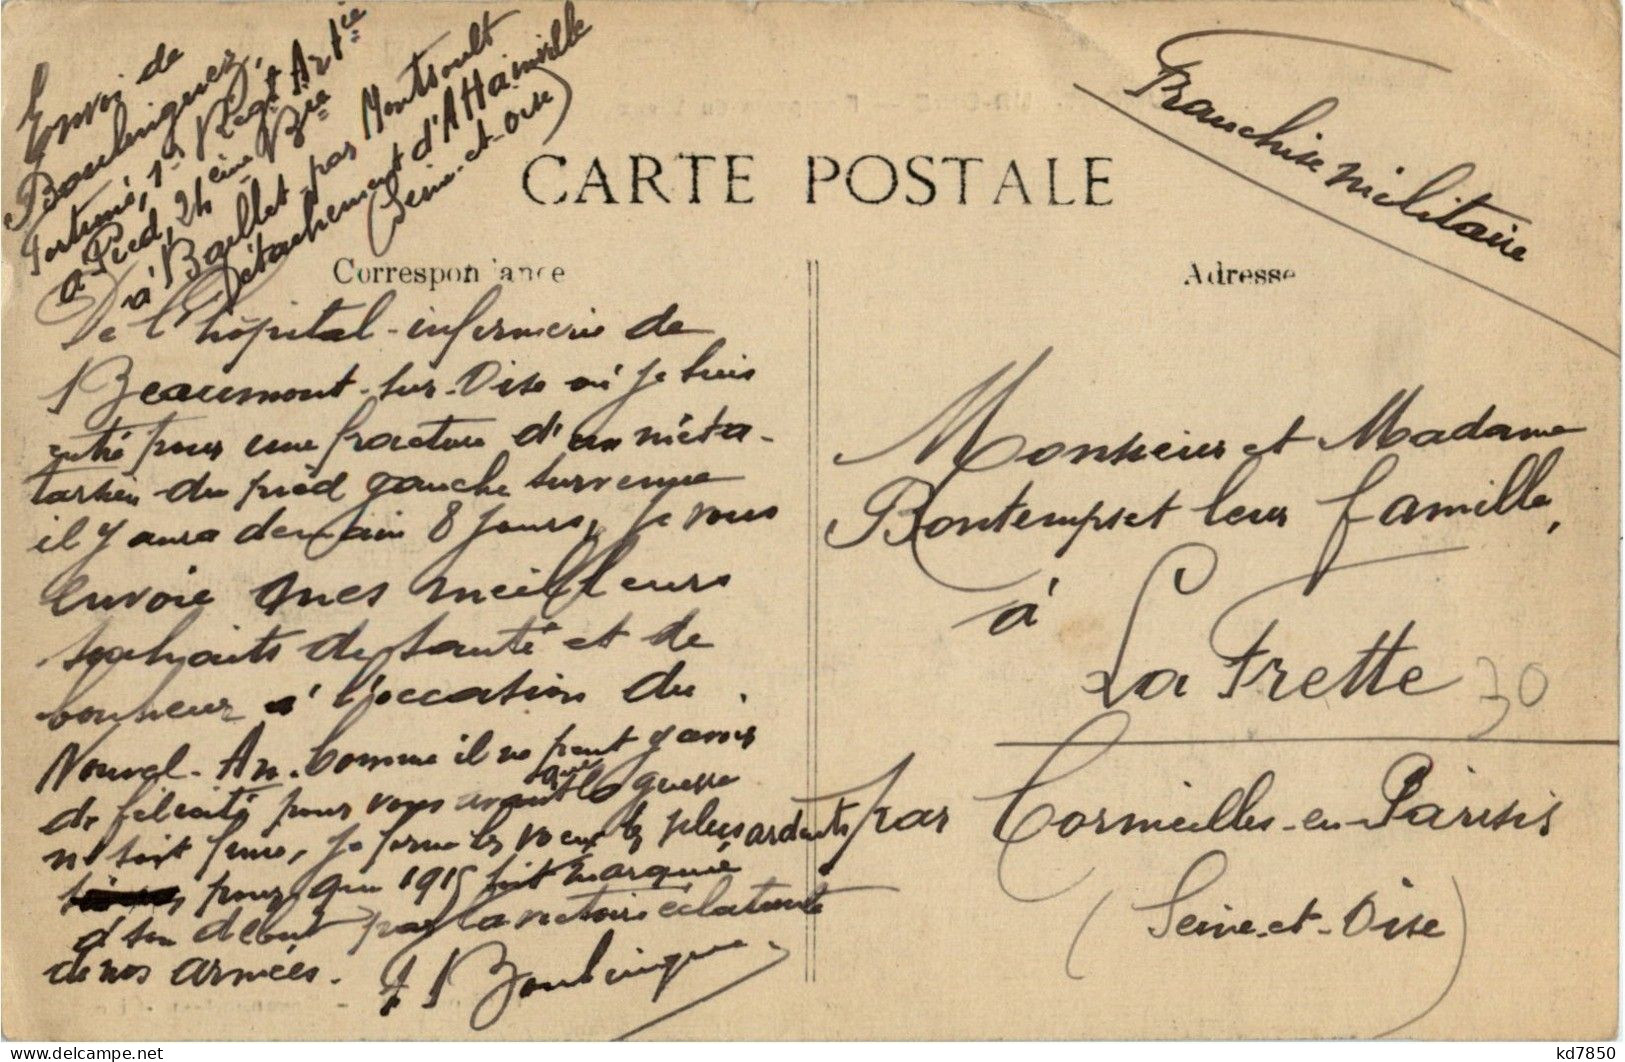 Envoi de
Boulinguez,
Fortuné, 1er Régt Artie
à Pied, 24ème Bie
à Baillet par Montsoult
Détachement d'Attainville
(Seine-et-Oise)
CARTE POSTALE
Franchise militaire
Correspondance
Adresse
De l'hôpital-infirmerie de
Beaumont-sur-Oise où je suis
entré pour une fracture d'un méta-
tarsien du pied gauche survenue
il y aura demain 8 jours, je vous
envoie mes meilleurs
souhaits de santé et de
bonheur à l'occasion du
Nouvel-An. Comme il ne peut y avoir
de félicité pour vous avant que la guerre
ne soit finie, je forme les voeux les plus ardents
pour que 1915 soit marquée
dès son début par la victoire éclatante
de nos armées. F Boulinguez
Monsieur et Madame
Bontemps et leur famille,
à
La Frette
30
par Cormeilles-en-Parisis
(Seine-et-Oise)
kd7850